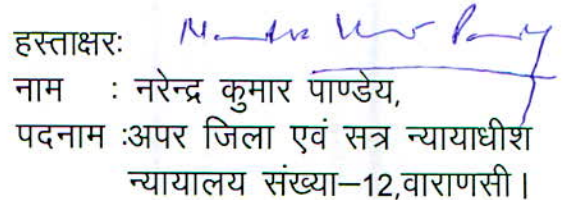 हस्ताक्षरः
नाम : नरेन्द्र कुमार पाण्डेय,
पदनाम :अपर जिला एवं सत्र न्यायाधीश
न्यायालय संख्या–12,वाराणसी।